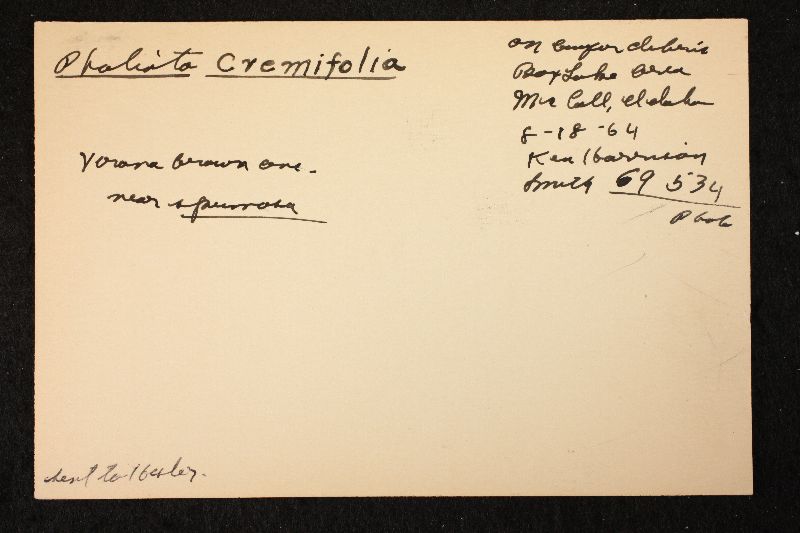 Pholiota Cremifolia
on conifer debris
Box Lake area
Mc Call, Idaho
8-18-64
Ken Harrison
Smith 69 534
Photo
brown one.
near spumosa
sent to Hesler.